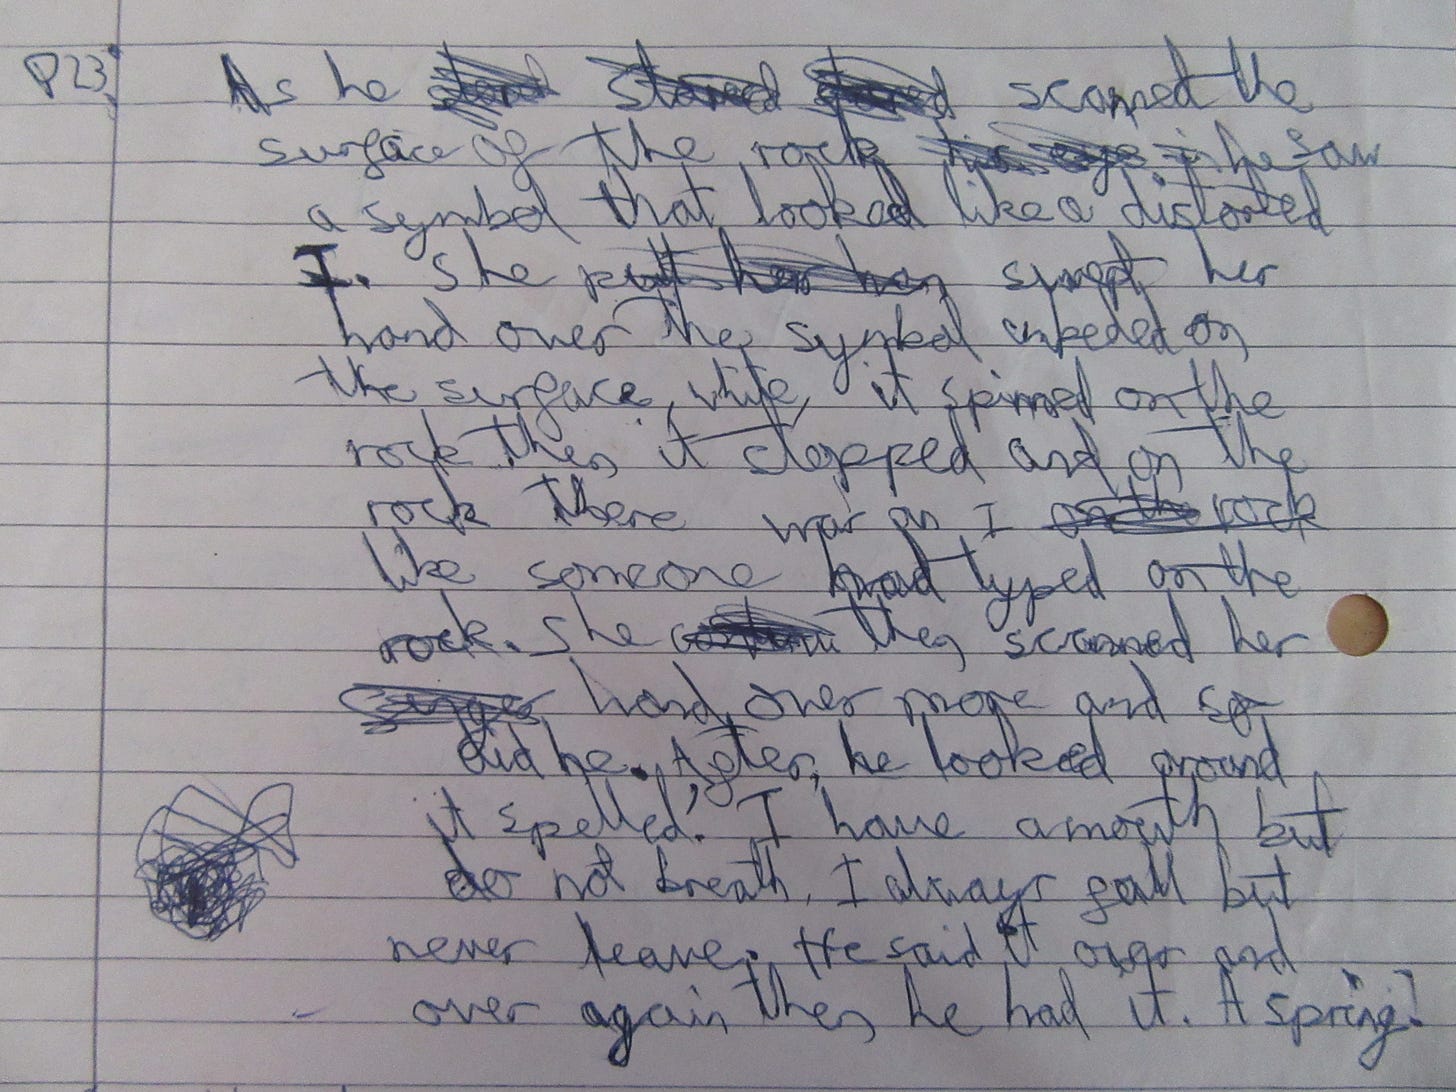 P23 As he scanned the
surface of the rock he saw
a symbol that looked like a distorted
I. She swept her
hand over the symbol enbeded on
the surface, white, it spinned on the
rock then it stopped and on the
rock there was an I
like someone had typed on the
rock. She then scanned her
hand over more and so
did he. After, he looked around
it spelled: I have a mouth but
do not breath, I always fall but
never leave. He said it over and
over again then he had it. A spring!